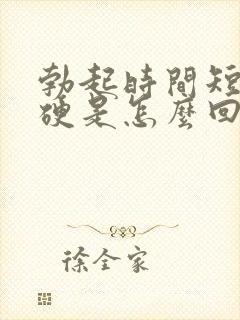 勃起時間短
硬是怎麼回
徐全家